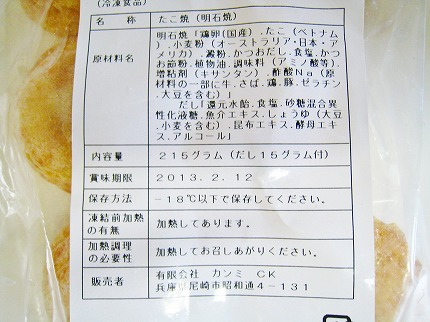 (冷凍食品)
名　称　たこ焼（明石焼）
原材料名　明石焼「鶏卵(国産）.たこ（ベトナム
）.小麦粉（オーストラリア・日本・ア
メリカ）.澱粉.かつおだし.食塩.かつ
お節粉.植物油.調味料（アミノ酸等）.
増粘剤（キサンタン）.酢酸Ｎａ（原
材料の一部に牛.さば.鶏.豚.ゼラチン
.大豆を含む）」
だし「還元水飴.食塩.砂糖混合異
性化液糖.魚介エキス.しょうゆ（大豆
.小麦を含む）.昆布エキス.酵母エキ
ス.アルコール」
内容量　２１５グラム（だし１５グラム付）
賞味期限　２０１３．２．１２
保存方法　−１８℃以下で保存してください。
凍結前加熱の有無　加熱してあります。
加熱調理の必要性　加熱してお召しあがりください。
販売者　有限会社　カンミ　ＣＫ
兵庫県尼崎市昭和通４−１３１